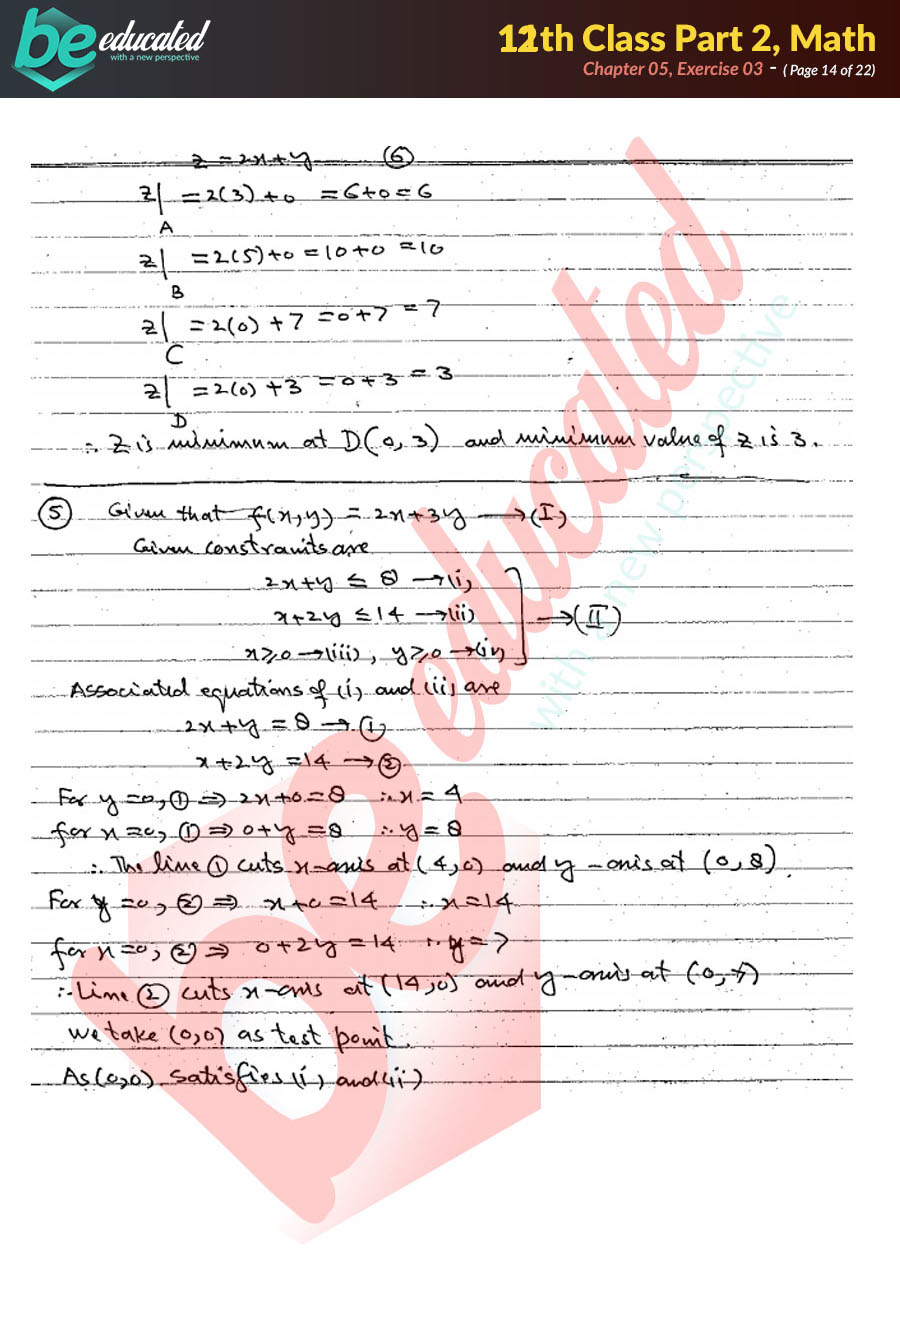 be educated
with a new perspective
12th Class Part 2, Math
Chapter 05, Exercise 03 - ( Page 14 of 22)
z = 2x+y (6)
z|A = 2(3)+0 = 6+0 = 6
z|B = 2(5)+0 = 10+0 = 10
z|C = 2(0)+7 = 0+7 = 7
z|D = 2(0)+3 = 0+3 = 3
∴ Z is minimum at D(0,3) and minimum value of z is 3.
(5) Given that f(x,y) = 2x+3y → (I)
Given constraints are
2x+y ≤ 8 → (i)
x+2y ≤ 14 → (ii) → (II)
x≥0 → (iii), y≥0 → (iv)
Associated equations of (i) and (ii) are
2x+y = 8 → (1)
x+2y = 14 → (2)
For y=0, (1) ⇒ 2x+0=8 ∴ x=4
for x=0, (1) ⇒ 0+y=8 ∴ y=8
∴ The line (1) cuts x-axis at (4,0) and y-axis at (0,8).
For y=0, (2) ⇒ x+0=14 ∴ x=14
for x=0, (2) ⇒ 0+2y=14 ∴ y=7
∴ Line (2) cuts x-axis at (14,0) and y-axis at (0,7)
We take (0,0) as test point.
As (0,0) satisfies (i) and (ii)
be educated
with a new perspective